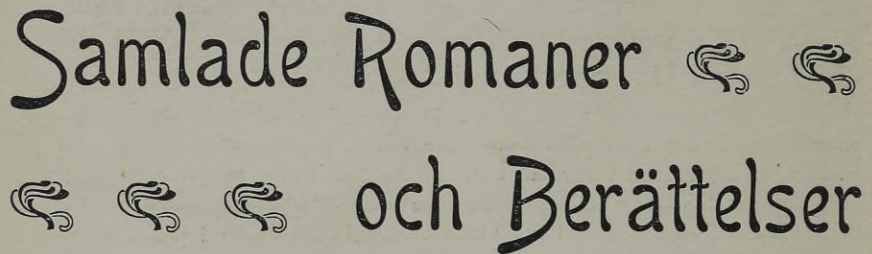 Samlade Romaner
och Berättelser